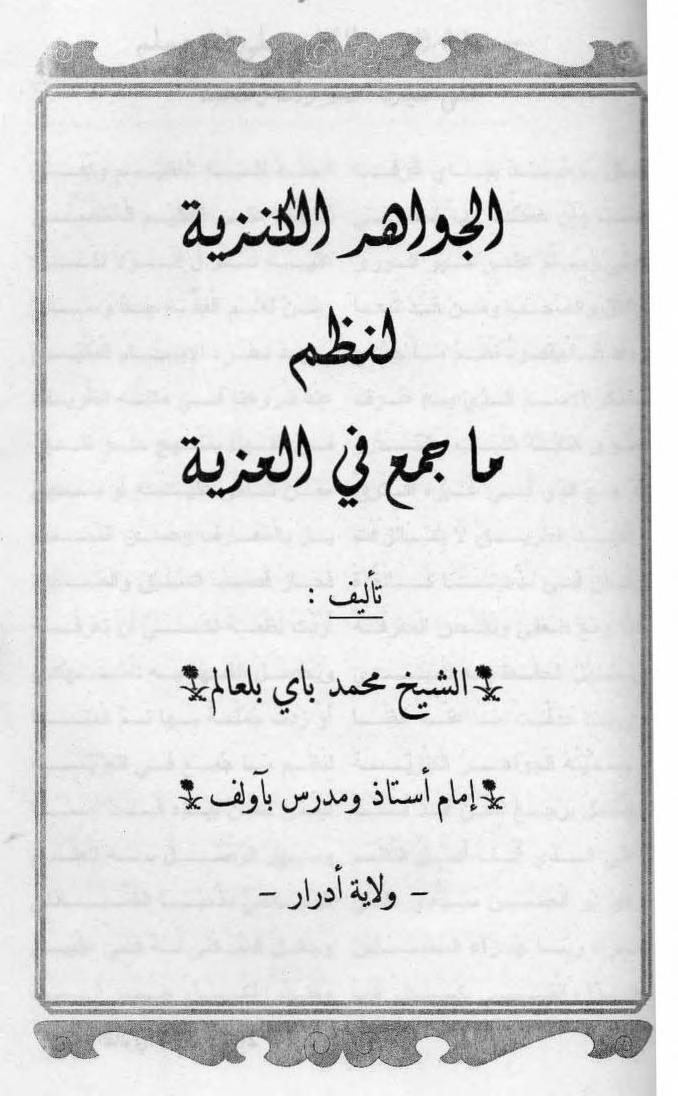 الجواهر الكنزية
لنظم
ما جمع في العزية
تأليف :
الشيخ محمد باي بلعالم
إمام أستاذ ومدرس بآولف
– ولاية أدرار –